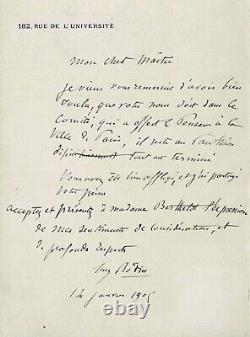 182, RUE DE L'UNIVERSITÉ
Mon cher Maître
je viens vous remercier d'avoir bien
voulu, que votre nom soit dans le
Comité, qui a offert le Penseur à la
Ville de Paris, il reste au Panthéon
tout est terminé
Vous avez été bien affligé, et j'ai partagé
votre peine
acceptez et présentez à madame Berthelot l'expression
de mes sentiments de considération, et
de profonds respects
Aug Rodin
14 janvier
© ebay.com